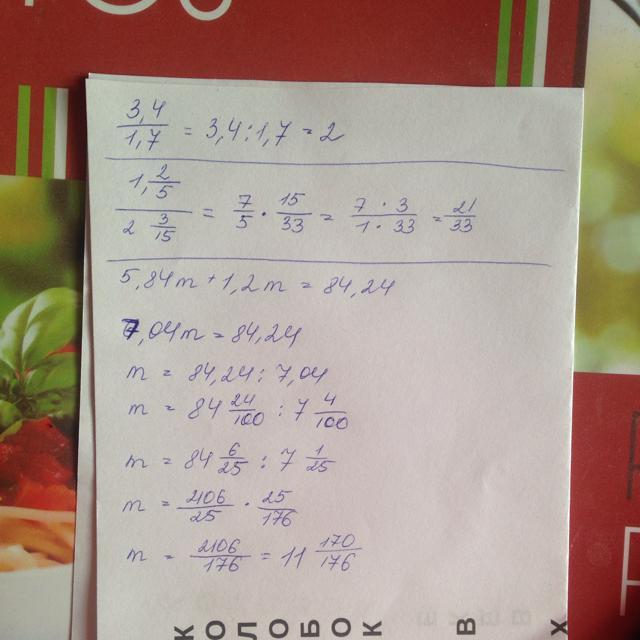 3,4/1,7 = 3,4 : 1,7 = 2
1, 2/5 / 2 3/15 = 7/5 · 15/33 = 7 · 3/1 · 33 = 21/33
5,84m + 1,2m = 84,24
7,04m = 84,24
m = 84,24 : 7,04
m = 84 24/100 : 7 4/100
m = 84 6/25 : 7 1/25
m = 2106/25 · 25/176
m = 2106/176 = 11 170/176
КОЛОБОК В